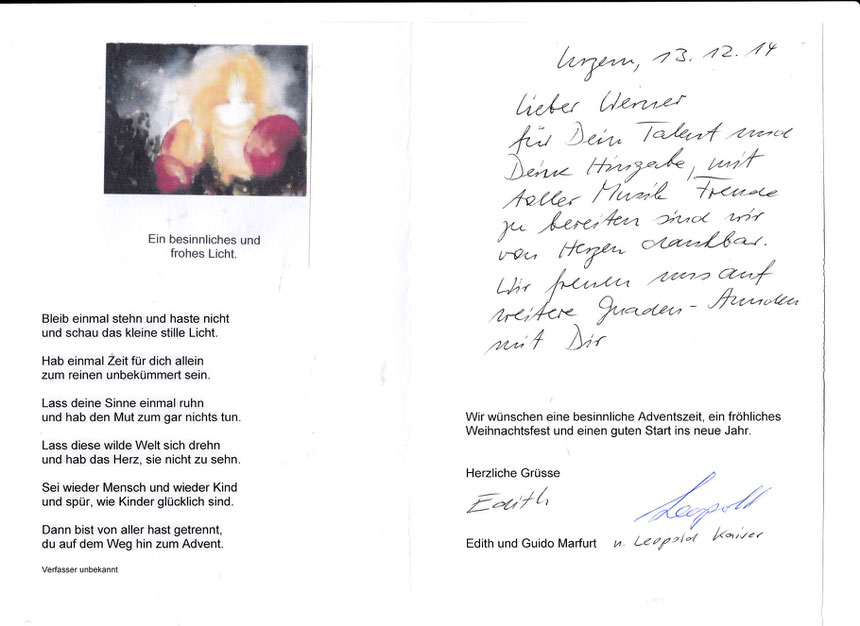 Ein besinnliches und
frohes Licht.
Bleib einmal stehn und haste nicht
und schau das kleine stille Licht.
Hab einmal Zeit für dich allein
zum reinen unbekümmert sein.
Lass deine Sinne einmal ruhn
und hab den Mut zum gar nichts tun.
Lass diese wilde Welt sich drehn
und hab das Herz, sie nicht zu sehn.
Sei wieder Mensch und wieder Kind
und spür, wie Kinder glücklich sind.
Dann bist von aller hast getrennt,
du auf dem Weg hin zum Advent.
Verfasser unbekannt
13.12.14
Lieber Werner
für Dein Talent und
Deine Hingabe, mit
toller Musik Freude
zu bereiten sind wir
von Herzen dankbar.
Wir freuen uns auf
weitere Gnaden-Stunden
mit Dir
Wir wünschen eine besinnliche Adventszeit, ein fröhliches
Weihnachtsfest und einen guten Start ins neue Jahr.
Herzliche Grüsse
Edith Leopold
Edith und Guido Marfurt n. Leopold Kaiser